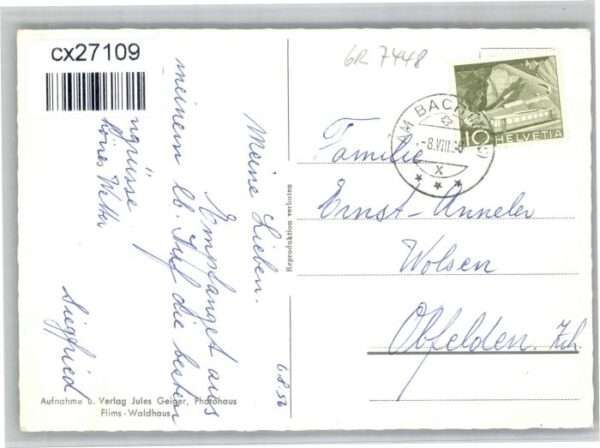 cx27109
GR 7448
Meine Lieben.
Empfanget aus
meinem lb. die besten
ngrüsse
hönes Wetter
Siegfried
6.8.50
Reproduktion verboten
AM BACH
-8.VIII.50
X
10 HELVETIA
Familie
Ernst-Anneler
Wolsen
Obfelden. Zch.
Aufnahme u. Verlag Jules Geiger, Photohaus
Flims-Waldhaus